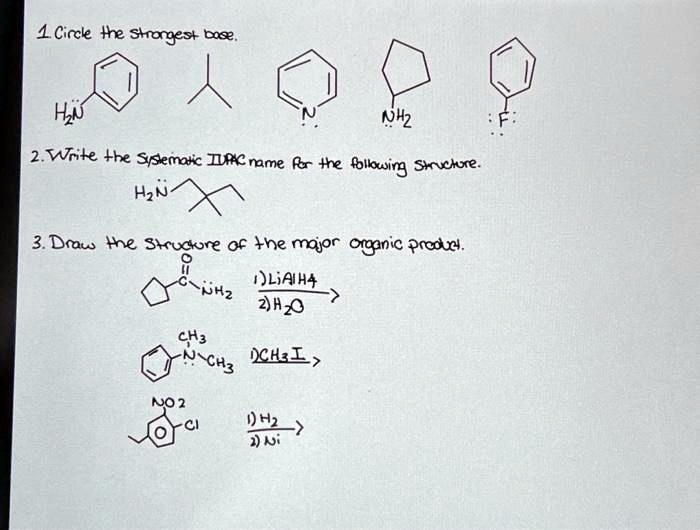 1. Circle the strongest base.
H₂N̈
N̈
N̈H₂
:F̤:
2. Write the Systematic IUPAC name for the following structure.
H₂N̈
3. Draw the structure of the major organic product.
O
C
N̈H₂
1) LiAlH4
2) H₂O
CH₃
N̤
CH₃
1) CH₃I
NO₂
Cl
1) H₂
2) Ni